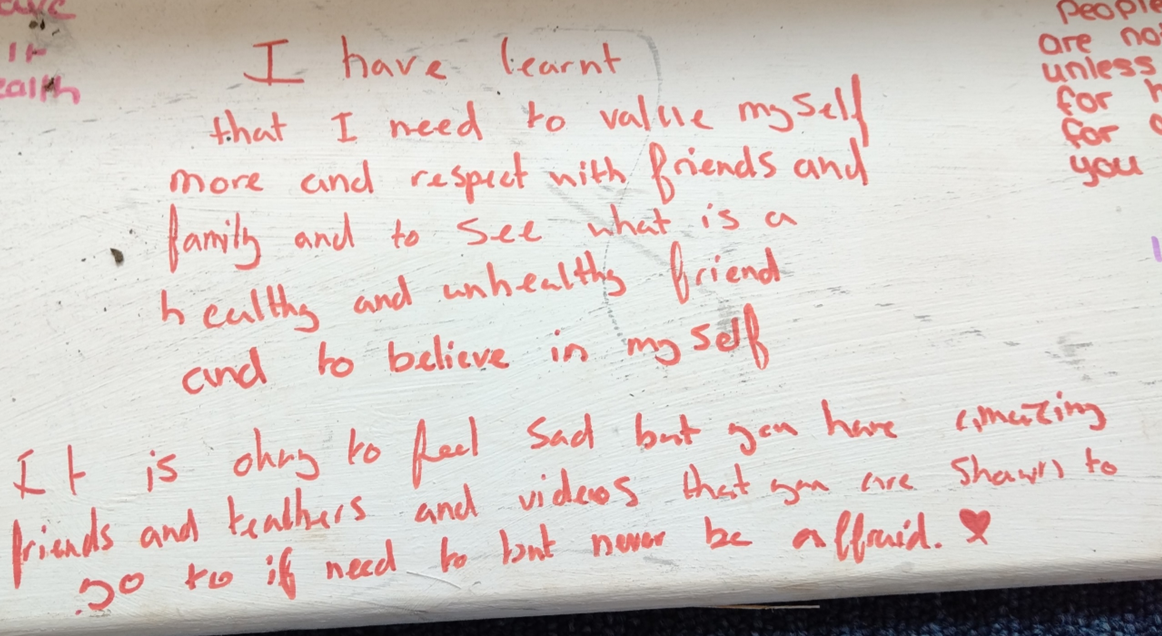 I have learnt
that I need to value myself
more and respect with friends and
family and to see what is a
healthy and unhealthy friend
and to believe in my self
It is okay to feel sad but you have amazing
friends and teathers and videos that you are shawn to
go to if need to but never be affraid. ♥
It
ealth
People
are no
unless
for h
for
you